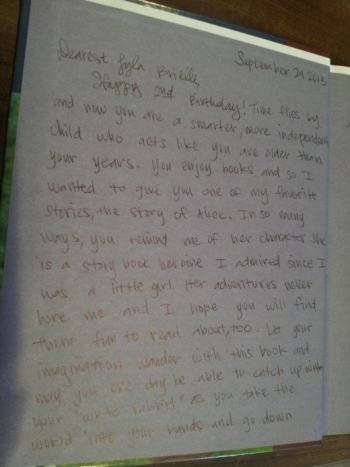 September 29 2013
Dearest Lyla Brielle,
Happy 2nd Birthday! Time flies by
and now you are a smarter, more independent
child who acts like you are older than
your years. You enjoy books and so I
wanted to give you one of my favorite
stories, the story of Alice. In so many
ways, you remind me of her character. She
is a story book heroine I admired since I
was a little girl. Her adventures never
bore me and I hope you will find
them fun to read about, too. Let your
imagination wander with this book and
may you one day be able to catch up with
your "white rabbit" as you take the
world into your hands and go down